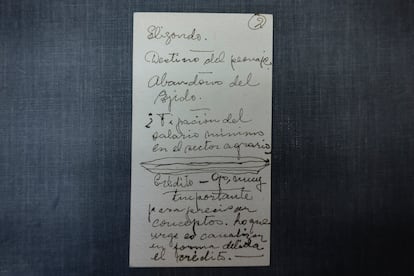 2
Elizondo.
Destino del
Abandono del
Ejido.
2 Fijación del
salario mínimo
en el sector agrario
Crédito — muy
importante
para precisar
conceptos. lo que
urge es canalizar
en forma
el crédito. —